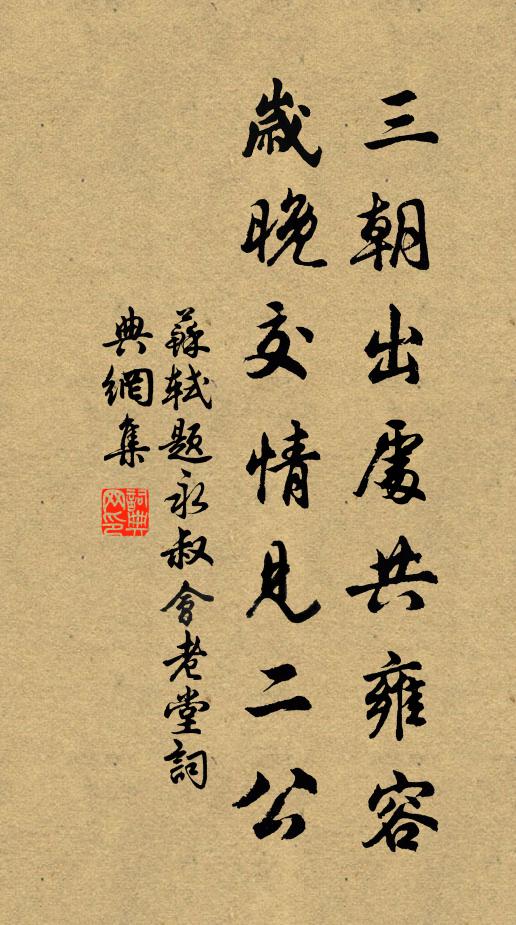 三朝出處共雍容
歲晚交情見二公
蘇軾題永叔會老堂詞
典網集
詞典網印